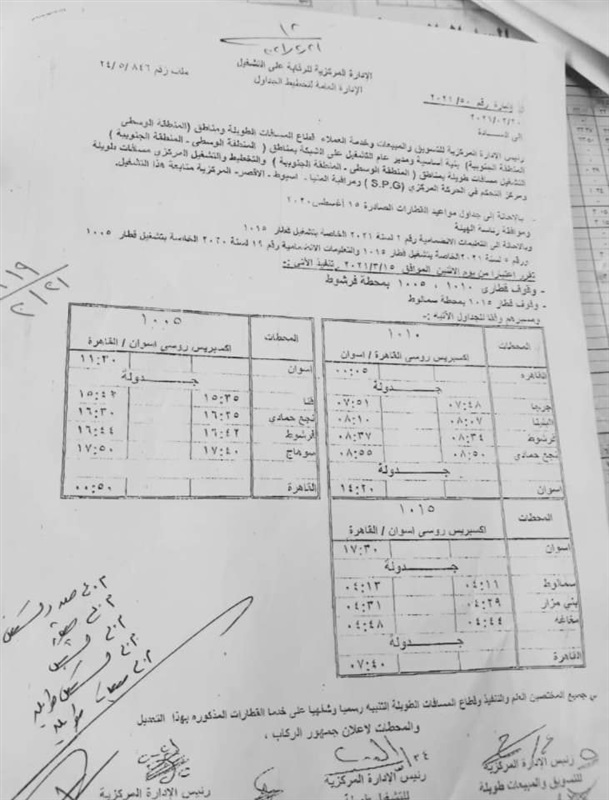 ١٢
٢٠٢١/٢/٢١
الإدارة المركزية للرقابة على التشغيل
الإدارة العامة لتخطيط الجداول
ملف رقم ٢٤/٥/٨٤٦
إشارة رقم ٢٠٢١/٥٠
٢٠٢١/٠٢/٢٠
الى السادة
رئيس الادارة المركزية للتسويق والمبيعات وخدمة العملاء قطاع المسافات الطويلة ومناطق (المنطقة الوسطى
المنطقة الجنوبية) بنية أساسية ومدير عام التشغيل على الشبكة بمناطق ( المنطقة الوسطى - المنطقة الجنوبية )
التشغيل مسافات طويلة بمناطق ( المنطقة الوسطى - المنطقة الجنوبية ) والتخطيط والتشغيل المركزي مسافات طويلة
ومركز التحكم في الحركة المركزي (S.P.G) ومراقبة المنيا - اسيوط - الاقصر - المركزية متابعة هذا التشغيل.
بالإحالة إلى جداول مواعيد القطارات الصادرة ١٥ أغسطس ٢٠٢٠
وموافقة رئاسة الهيئة
وبالاحالة الى التعليمات الانضمامية رقم ٢ لسنة ٢٠٢١ الخاصة بتشغيل قطار ١٠١٥
ورقم ٥ لسنة ٢٠٢١ الخاصة بتشغيل قطار ١٠١٥ والتعليمات الانضمامية رقم ١٩ لسنة ٢٠٢٠ الخاصة بتشغيل قطار ١٠٠٥
تقرر اعتبارا من يوم الاثنين الموافق ٢٠٢١/٣/١٥ تنفيذ الآتى :-
- وقوف قطارى ١٠١٠ ، ١٠٠٥ بمحطة فرشوط
- وقوف قطار ١٠١٥ بمحطة سمالوط
ومسيرهم وفقا للجداول الآتيه :-
المحطات ١٠١٠
اكسبريس روسى القاهرة / اسوان
القاهره ٠٠:٠٥
جدولة
جرجا ٠٧:٤٨ ٠٧:٥١
البلينا ٠٨:٠٧ ٠٨:١٠
فرشوط ٠٨:٣٤ ٠٨:٣٧
نجع حمادى ٠٨:٥٠ ٠٨:٥٥
جدولة
اسوان ١٤:٢٠
المحطات ١٠٠٥
اكسبريس روسى اسوان / القاهرة
اسوان ١١:٣٠
جدولة
قنا ١٥:٣٥ ١٥:٤٢
نجع حمادى ١٦:٢٥ ١٦:٣٠
فرشوط ١٦:٤٢ ١٦:٤٤
سوهاج ١٧:٤٠ ١٧:٥٠
القاهرة ٠٠:٥٠
المحطات ١٠١٥
اكسبريس روسى اسوان / القاهرة
اسوان ١٧:٣٠
جدولة
سمالوط ٠٤:١١ ٠٤:١٣
بني مزار ٠٤:٢٩ ٠٤:٣١
مغاغه ٠٤:٤٤ ٠٤:٤٨
جدولة
القاهرة ٠٧:٤٠
جميع المختصين العلم والتنفيذ وقطاع المسافات الطويلة التنبيه رسميا وشفهيا على خدما القطارات المذكوره بهذا التعديل
والمحطات لاعلان جمهور الركاب ،
رئيس الإدارة المركزية
للتسويق والمبيعات طويلة
رئيس الإدارة المركزية
للتشغيل طويلة
رئيس الإدارة المركزية